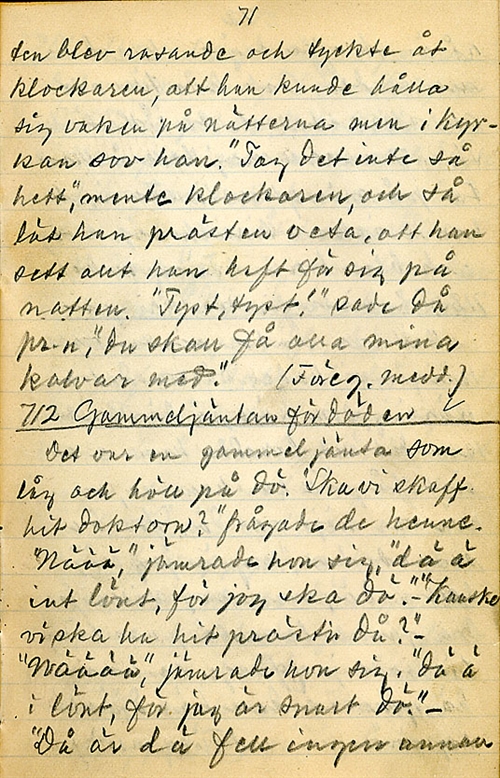 71
ten blev rasande och tyckte åt
klockaren, att han kunde hålla
sig vaken på nätterna men i kyr-
kan sov han. "Tag det inte så
hett", mente klockaren, och så
lät han prästen veta, att han
sett allt han haft för sig på
natten. "Tyst, tyst!" sade då
pr-n, "du skall få alla mina
kalvar med." (Föreg. medd.)
712 Gammeljäntan för döden
Det var en gammel jänta som
låg och höll på dö. "Ska vi skaff
hit doktorn?" frågade de henne.
"Nääää," jämrade hon sig, "dä ä
int lönt, för jag ska dö."-"Kanske
vi ska ha hit prästn då?"-
"Nääää", jämrade hon sig. "dä ä
i lönt, för jag är snart dö."-
"Då är dä fell ingen annan